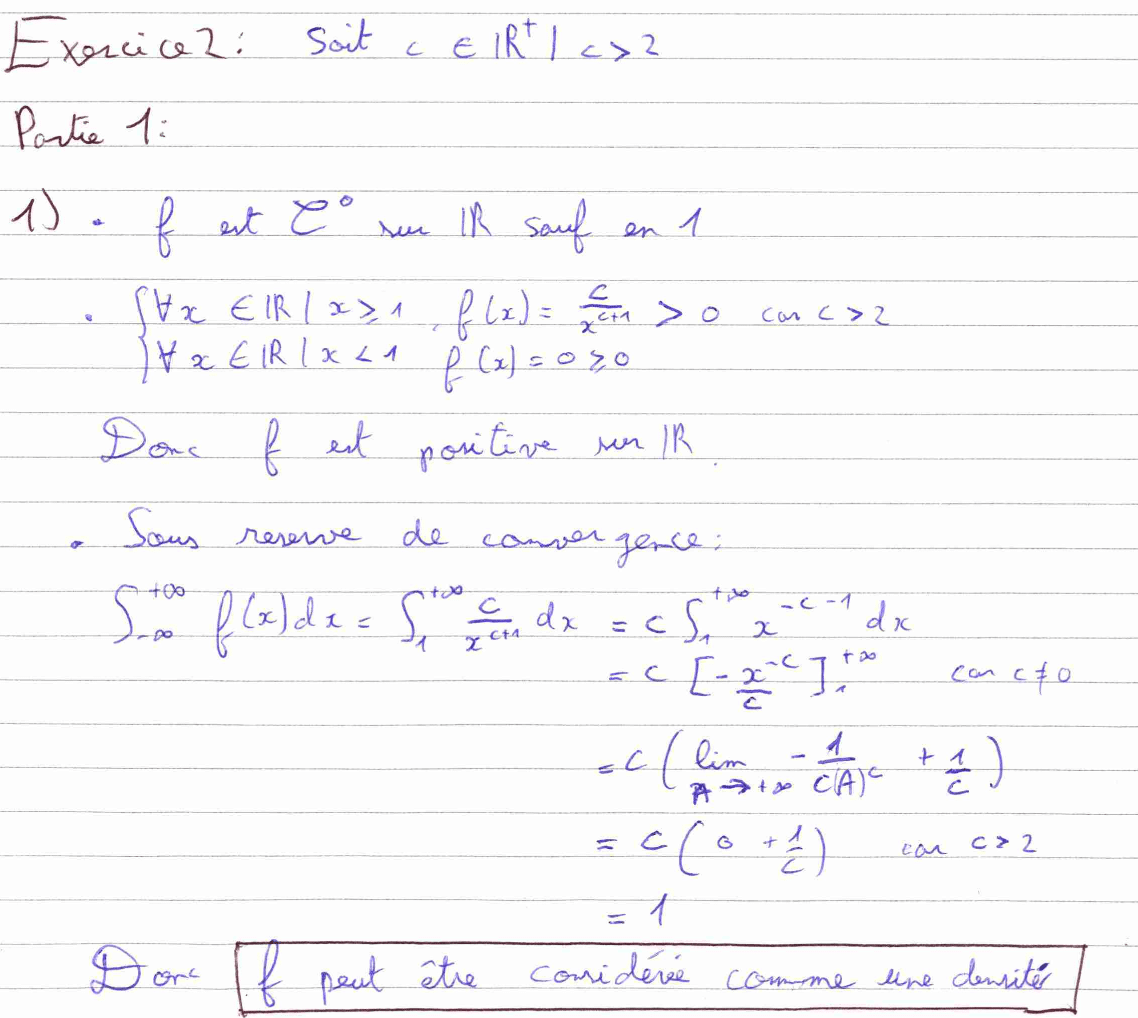 Exercice 2: Soit c ∈ ℝ⁺ | c > 2
Partie 1:
1) • f est C⁰ sur ℝ sauf en 1
• { ∀x ∈ ℝ | x ≥ 1, f(x) = c/x^(c+1) > 0 car c > 2
∀x ∈ ℝ | x < 1 f(x) = 0 ≥ 0
Donc f est positive sur ℝ.
• Sous reserve de convergence:
∫_{-∞}^{+∞} f(x)dx = ∫_1^{+∞} c/x^(c+1) dx = c ∫_1^{+∞} x^(-c-1) dx
= c [-x^(-c)/c]_1^{+∞} car c ≠ 0
= c ( lim_{A→+∞} -1/(c(A)^c) + 1/c )
= c ( 0 + 1/c ) car c > 2
= 1
Donc f peut être considérée comme une densité